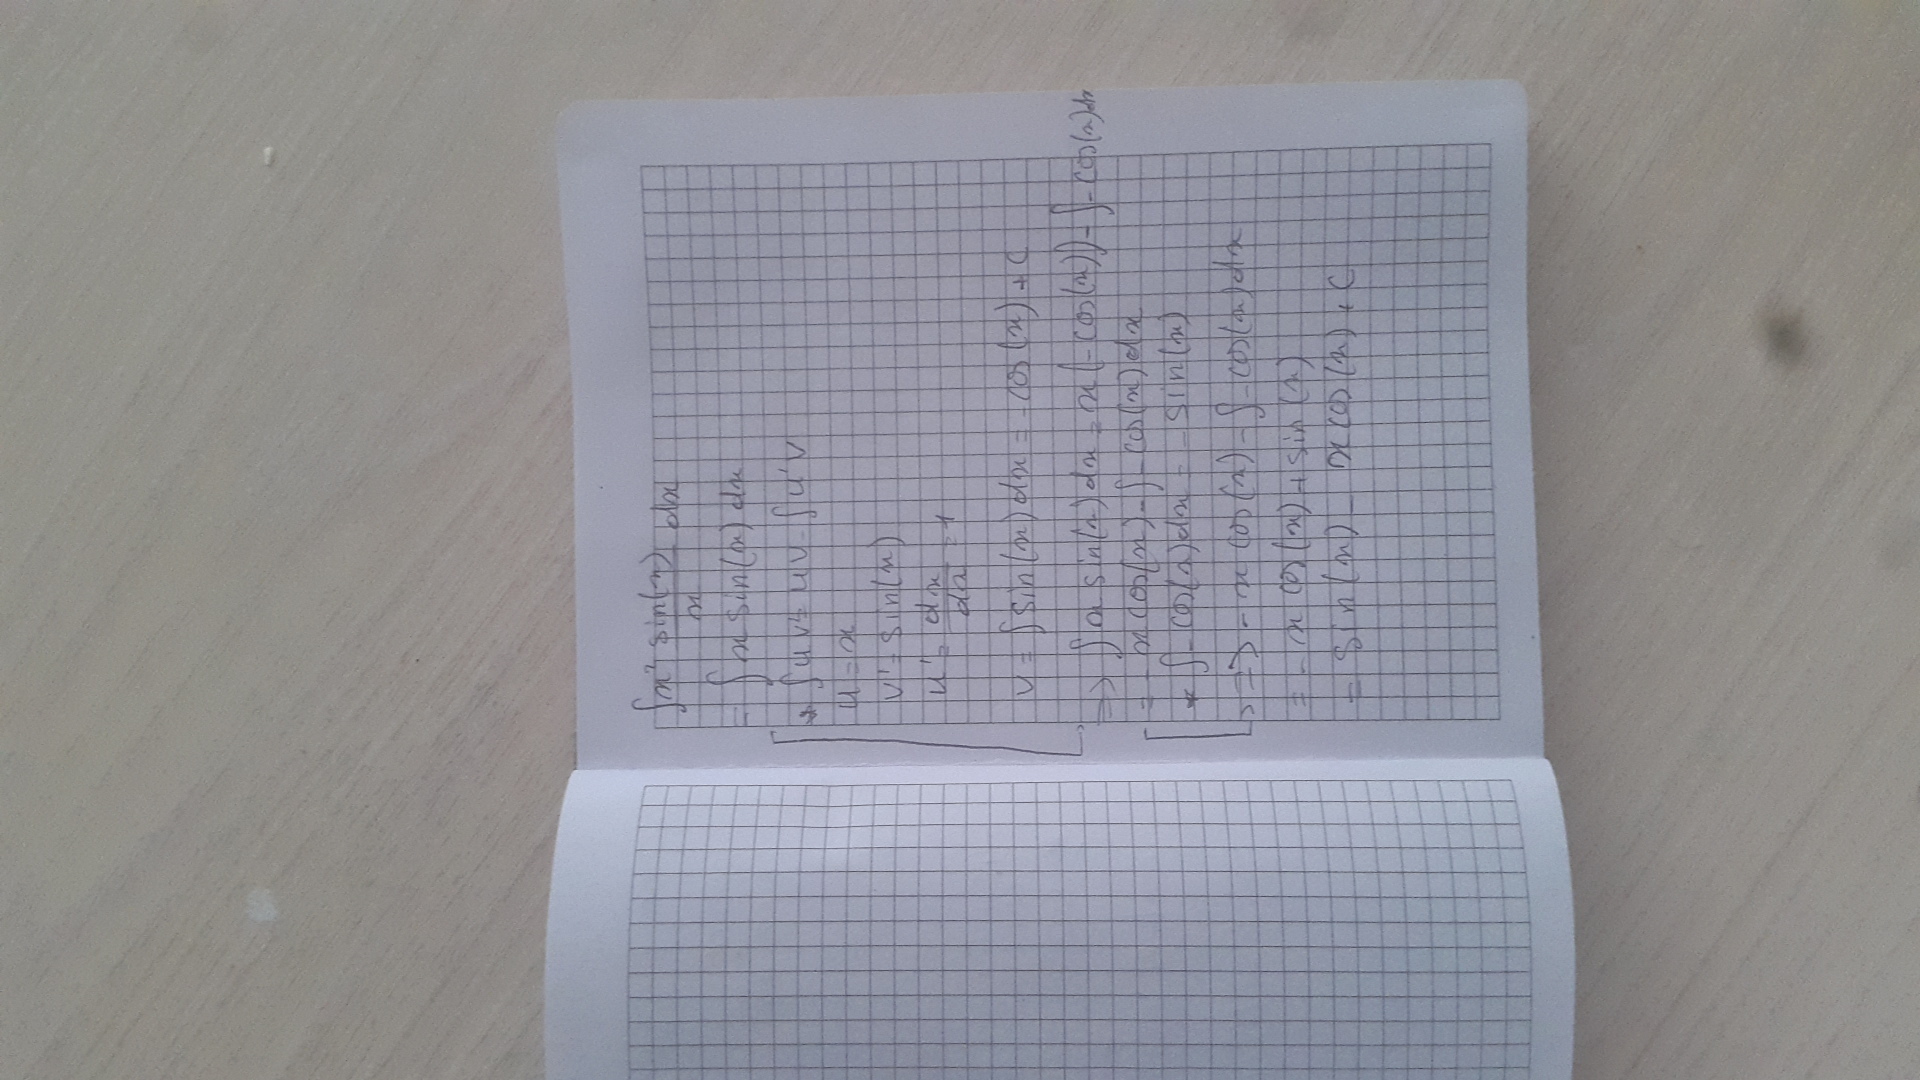 ∫ x² sin(x)/x dx
= ∫ x sin(x) dx
* ∫ u v' = u v - ∫ u' v
u = x
v' = sin(x)
u' = dx/dx = 1
v = ∫ sin(x) dx = - cos(x) + C
=> ∫ x sin(x) dx = x(- cos(x)) - ∫ - cos(x) dx
= - x cos(x) - ∫ - cos(x) dx
* ∫ - cos(x) dx = - sin(x)
=> - x cos(x) - ∫ - cos(x) dx
= - x cos(x) + sin(x)
= sin(x) - x cos(x) + C